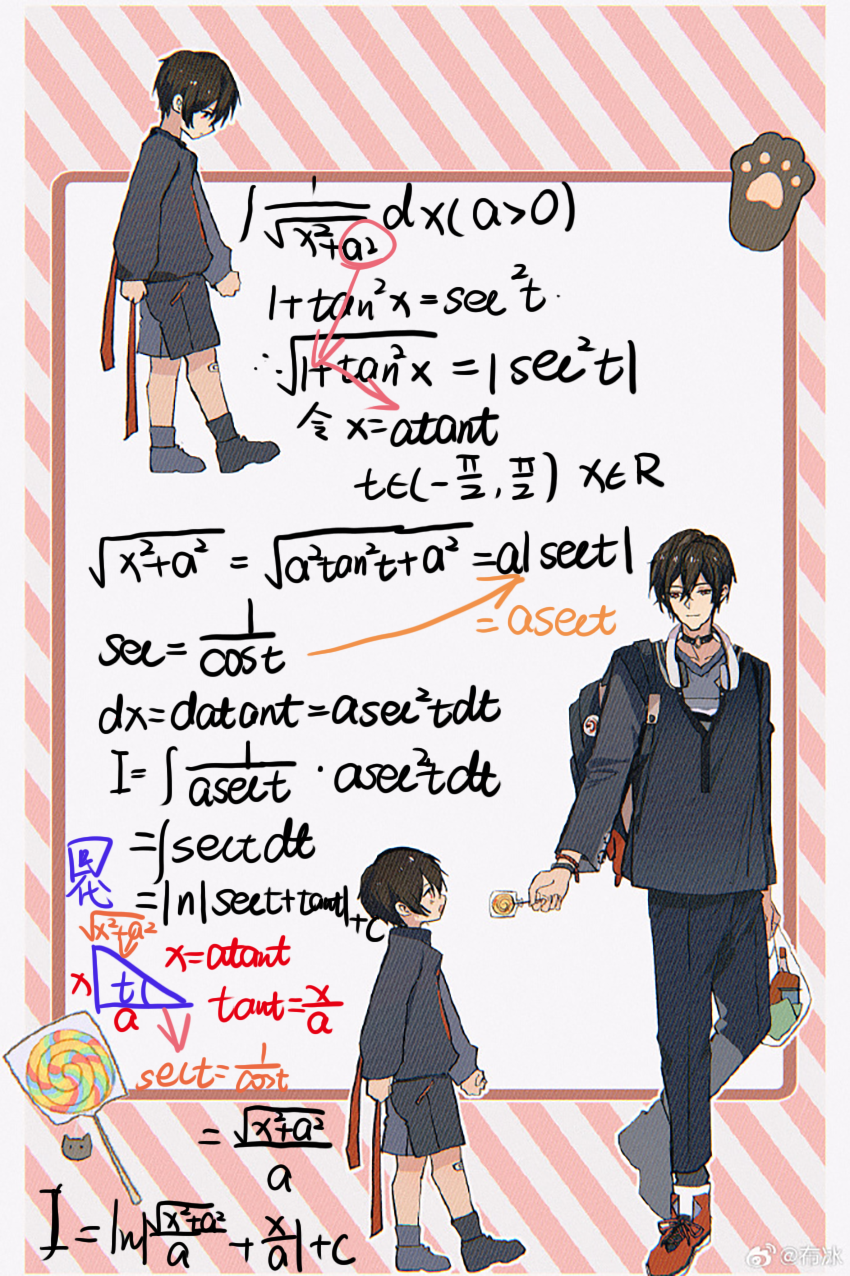 ∫ 1/√(x²+a²) dx (a>0)
1+tan²x=sec²t.
∴√(1+tan²x) = |sec²t|
令 x=atant
t∈(-π/2, π/2) x∈R
√(x²+a²) = √(a²tan²t+a²) =a|sect|
=asect
sec=1/cost
dx=datant=asec²tdt
I=∫ 1/asect · asec²tdt
=∫sectdt
回代
=ln|sect+tant|+C
√(x²+a²)
x=atant
x
t
a
tant=x/a
sect=1/cost
=√(x²+a²)/a
I=ln|√(x²+a²)/a+x/a|+C